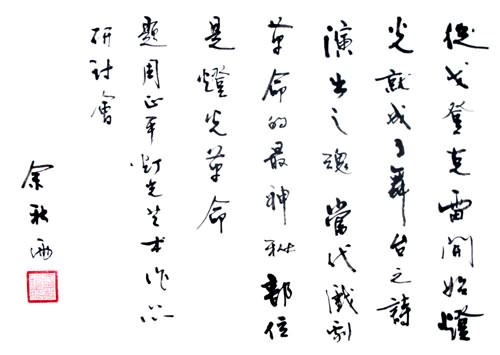 從戈登克雷開始燈
光就成了舞台之詩
演出之魂當代戲劇
革命的最神秘部位
是燈光革命
題周正平灯光艺术作品
研討會
余秋雨